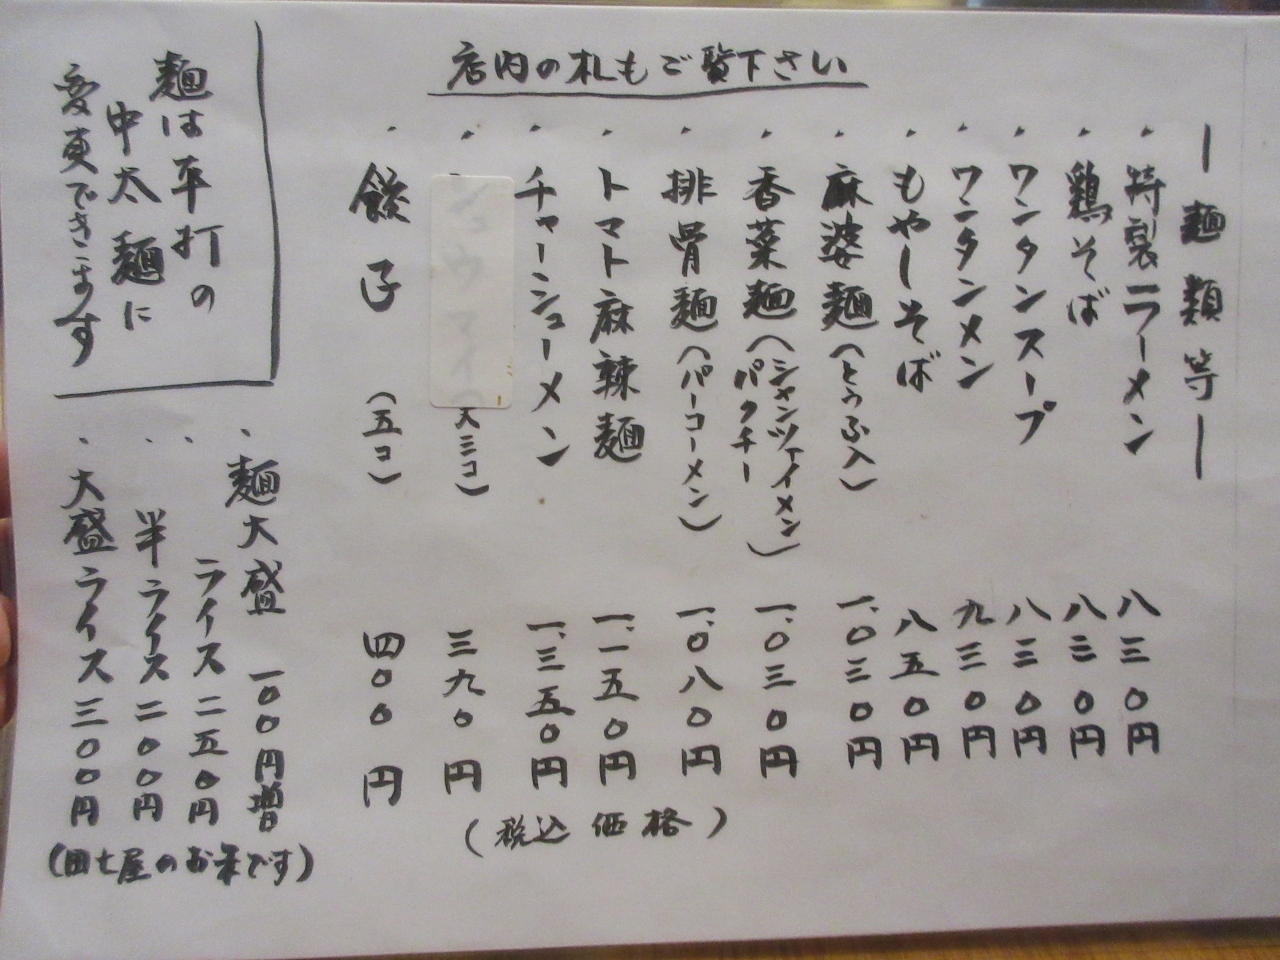 店内の札もご覧下さい
ー麺類等ー
・特製ラーメン 八三〇円
・鶏そば 八三〇円
・ワンタンスープ 八三〇円
・ワンタンメン 九三〇円
・もやしそば 八五〇円
・麻婆麺(とうふ入) 一、〇三〇円
・香菜麺(シャンツァイメン) 一、〇三〇円
パクチー
・排骨麺(パーコーメン) 一、〇八〇円
・トマト麻辣麺 一、一五〇円
・チャーシューメン 一、三五〇円
・シュウマイ 大三コ) 三九〇円
・餃子(五コ) 四〇〇円
(税込価格)
麺は平打の
中太麺に
変更できます
・麺大盛 一〇〇円増
・ライス 二五〇円
・半ライス 二〇〇円
・大盛ライス 三〇〇円
(田七屋のお米です)